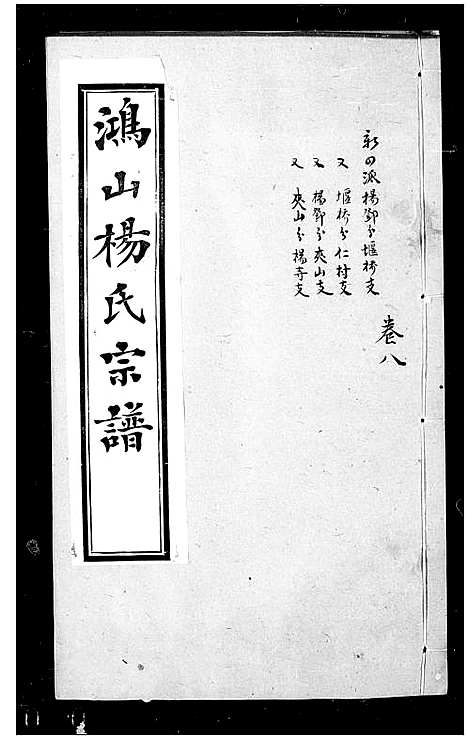 新四派楊鄧分堰橋支
又 堰橋分仁村支
又 楊鄧分夾山支
又 夾山分楊寺支
卷八
鴻山楊氏宗譜